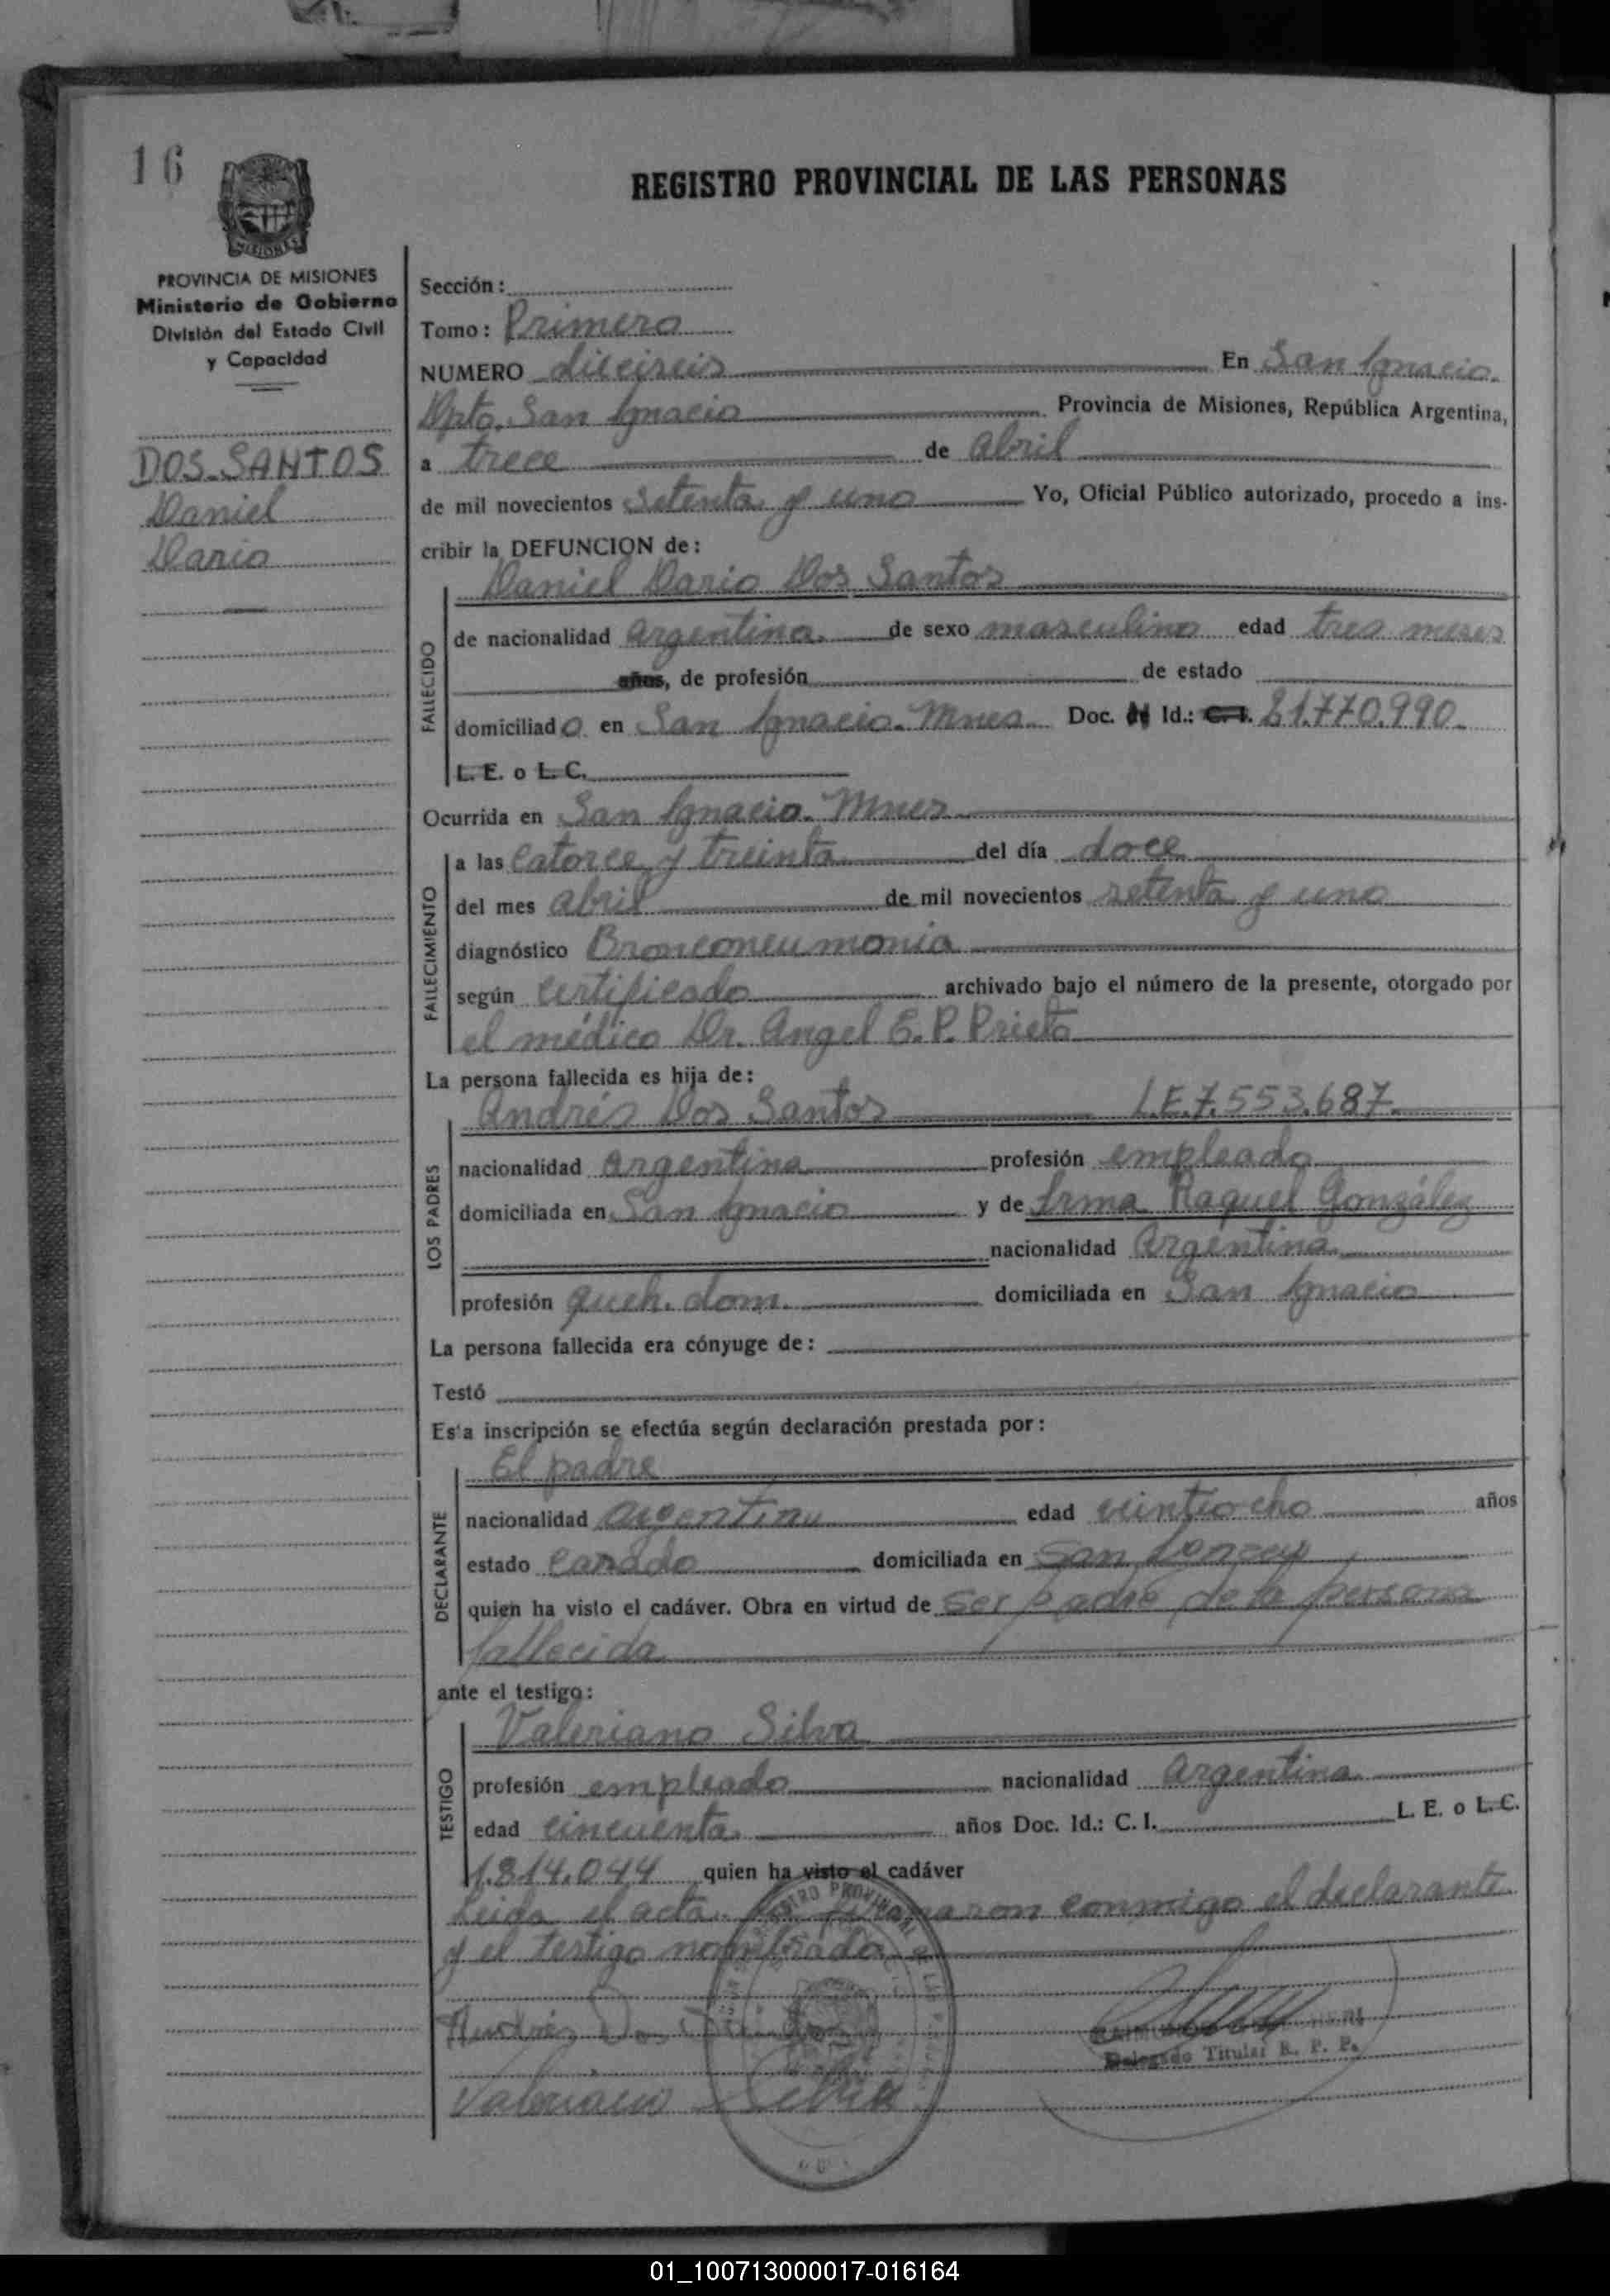 16
REGISTRO PROVINCIAL DE LAS PERSONAS
MISIONES
PROVINCIA DE MISIONES
Ministerio de Gobierno
División del Estado Civil
y Capacidad
DOS SANTOS
Daniel
Dario
Sección:
Tomo: Primero
NUMERO dieciseis En San Ignacio.
Dpto. San Ignacio Provincia de Misiones, República Argentina,
a trece de abril
de mil novecientos setenta y uno Yo, Oficial Público autorizado, procedo a ins-
cribir la DEFUNCION de:
Daniel Dario Dos Santos
FALLECIDO
de nacionalidad argentina. de sexo masculino edad tres meses
años, de profesión de estado
domiciliado en San Ignacio. Mnes. Doc. Id.: C. I. 21.770.990.
L. E. o L. C.
Ocurrida en San Ignacio. Mnes
FALLECIMIENTO
a las catorce y treinta del día doce
del mes abril de mil novecientos setenta y uno
diagnóstico Bronconeumonia
según certificado archivado bajo el número de la presente, otorgado por
el médico Dr. Angel E. P. Prieto
La persona fallecida es hija de:
Andrés Dos Santos L.E. 7.553.687.
LOS PADRES
nacionalidad Argentina profesión empleado
domiciliada en San Ignacio y de Irma Raquel González
nacionalidad Argentina
profesión queh. dom. domiciliada en San Ignacio
La persona fallecida era cónyuge de:
Testó
Esta inscripción se efectúa según declaración prestada por:
El padre
DECLARANTE
nacionalidad argentina edad veintiocho años
estado casado domiciliada en San
quien ha visto el cadáver. Obra en virtud de ser padre de la persona
fallecida
ante el testigo:
Valeriano Silva
TESTIGO
profesión empleado nacionalidad argentina
edad cincuenta años Doc. Id.: C. I. L. E. o L. C.
1.814.044 quien ha visto el cadáver
Leida el acta la firmaron conmigo el declarante
y el testigo nombrado
Andrés Dos Santos
Delegado Titular R. P. P.
Valeriano Silva
01_100713000017-016164